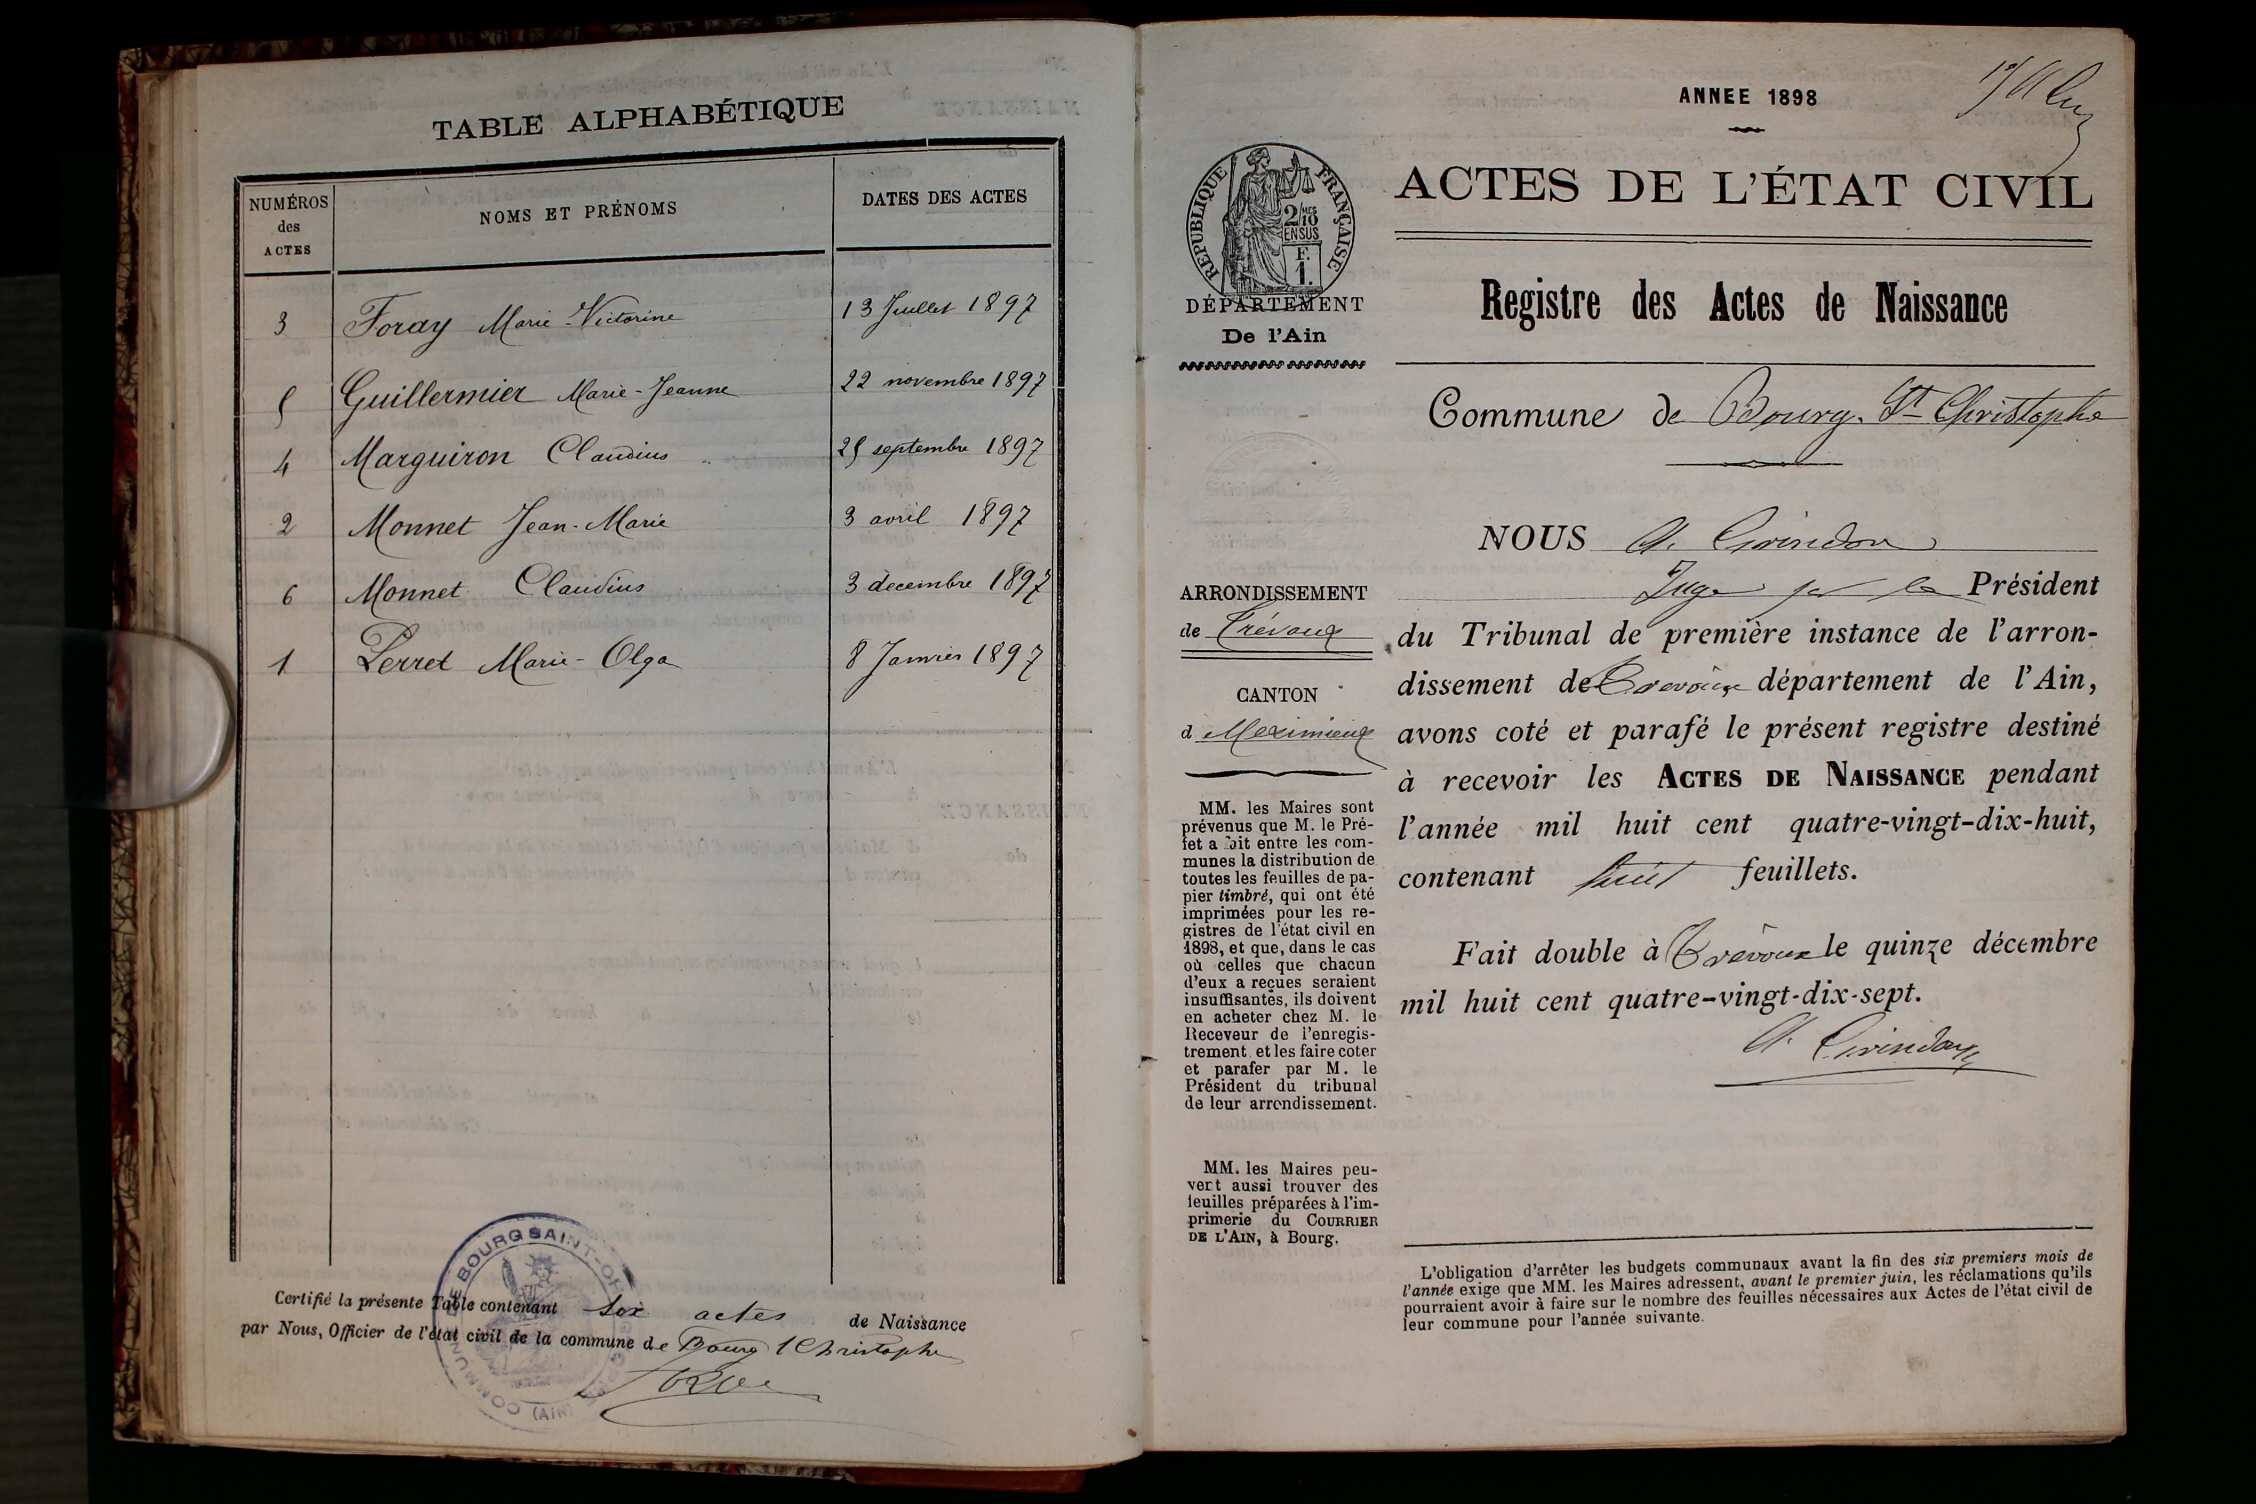 TABLE ALPHABÉTIQUE
NUMÉROS des ACTES
NOMS ET PRÉNOMS
DATES DES ACTES
3 Foray Marie-Victorine 13 Juillet 1897
5 Guillermier Marie-Jeanne 22 novembre 1897
4 Marguiron Claudius 25 septembre 1897
2 Monnet Jean-Marie 3 avril 1897
6 Monnet Claudius 3 décembre 1897
1 Perret Marie-Olga 8 Janvier 1897
Certifié la présente Table contenant six actes de Naissance
par Nous, Officier de l'état civil de la commune de Bourg St Christophe
COMMUNE DE BOURG SAINT-
(AIN)
ANNEE 1898
ACTES DE L'ÉTAT CIVIL
REPUBLIQUE FRANÇAISE
2/10 MES
EN SUS
F.
1.
DÉPARTEMENT
De l'Ain
Registre des Actes de Naissance
Commune de Bourg-St Christophe
ARRONDISSEMENT
de Trévoux
CANTON
d Meximieux
MM. les Maires sont
prévenus que M. le Pré-
fet a fait entre les com-
munes la distribution de
toutes les feuilles de pa-
pier timbré, qui ont été
imprimées pour les re-
gistres de l'état civil en
1898, et que, dans le cas
où celles que chacun
d'eux a reçues seraient
insuffisantes, ils doivent
en acheter chez M. le
Receveur de l'enregis-
trement et les faire coter
et parafer par M. le
Président du tribunal
de leur arrondissement.
MM. les Maires peu-
vent aussi trouver des
feuilles préparées à l'im-
primerie du COURRIER
DE L'AIN, à Bourg.
NOUS A.
Juge Président
du Tribunal de première instance de l'arron-
dissement de Trévoux département de l'Ain,
avons coté et parafé le présent registre destiné
à recevoir les ACTES DE NAISSANCE pendant
l'année mil huit cent quatre-vingt-dix-huit,
contenant huit feuillets.
Fait double à Trévoux le quinze décembre
mil huit cent quatre-vingt-dix-sept.
L'obligation d'arrêter les budgets communaux avant la fin des six premiers mois de
l'année exige que MM. les Maires adressent, avant le premier juin, les réclamations qu'ils
pourraient avoir à faire sur le nombre des feuilles nécessaires aux Actes de l'état civil de
leur commune pour l'année suivante.